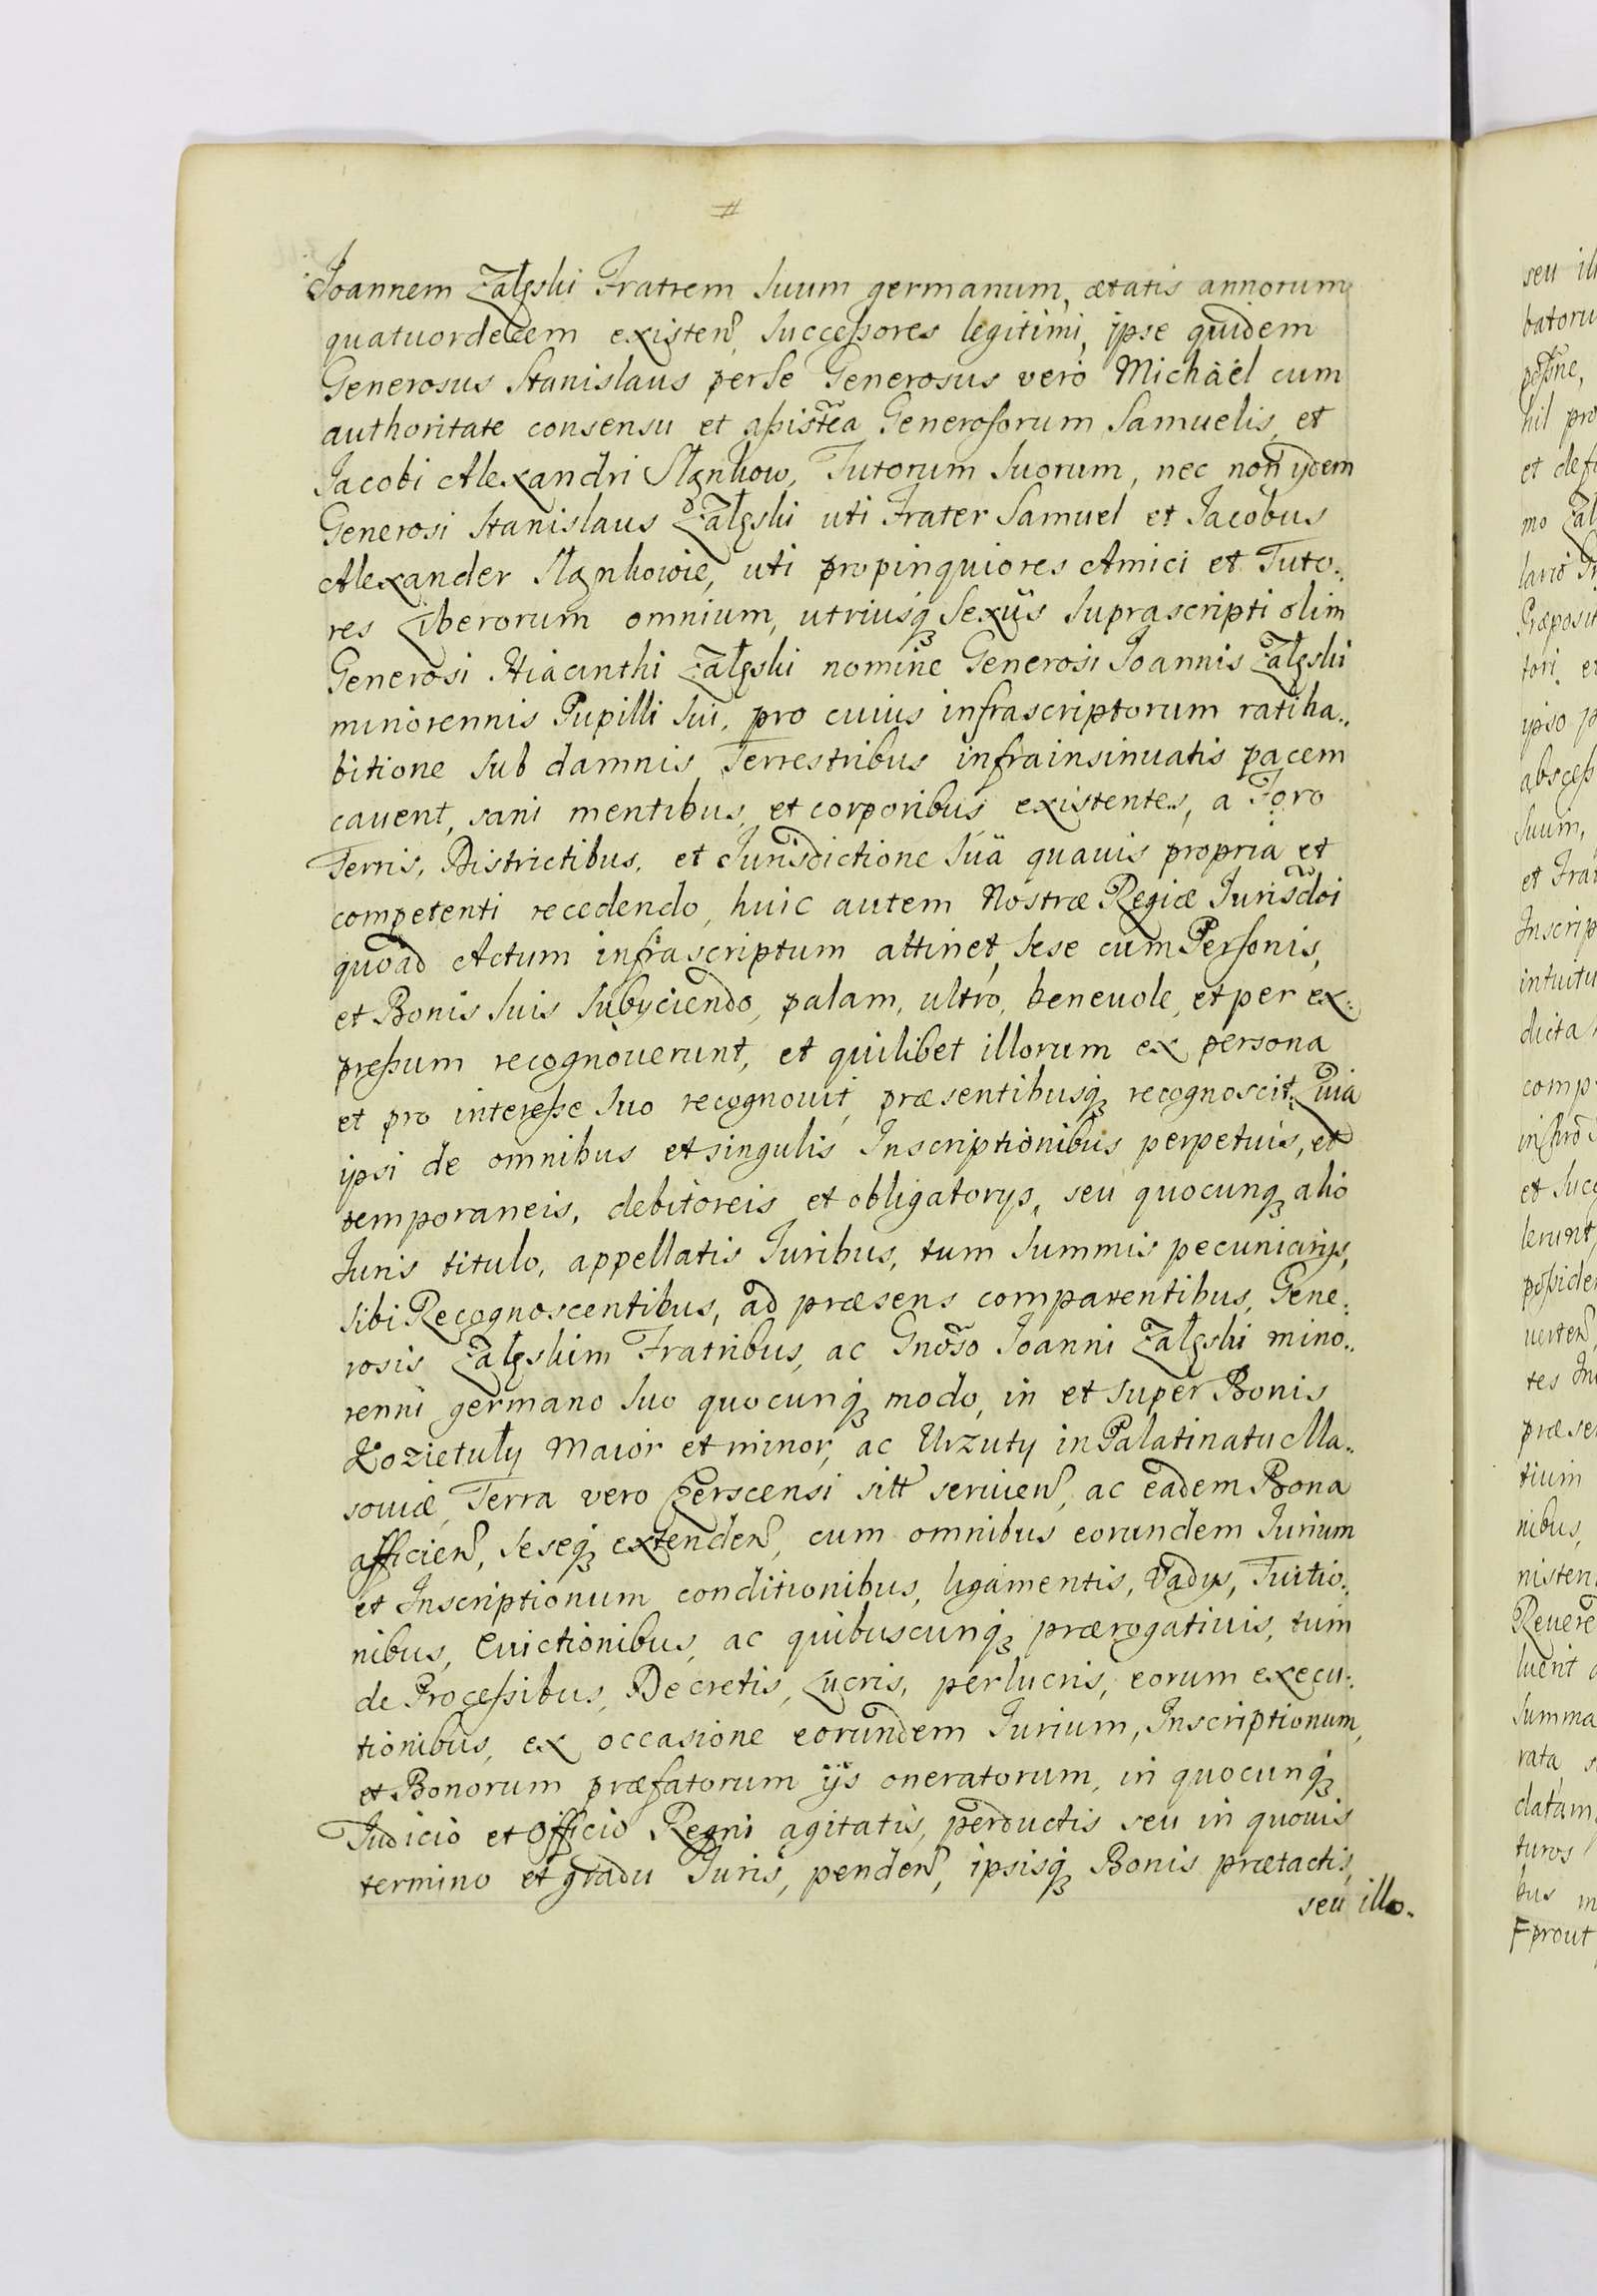 Joannem Załęski Fratrem Suum germanum, ætatis annorum
quatuordecem existen̄, Successores legitimi, ipse quidem
Generosus Stanislaus perse Generosus vero Michaël cum
authoritate consensu et assist̃ea Generosorum Samuelis, et
Jacobi Alexandri Slanhow, Tutorum Suorum, nec non ydem
Generosi Stanislaus Załęski uti Frater Samuel et Jacobus
Alexander Slanhowie, uti propinquiores Amici et Tuto..
res Liberorum omnium, utriusq; Sexus Suprascripti olim
Generosi Hiacinthi Załęski nomine Generosi Joannis Załęski
minorennis Pupilli Sui, pro cuius infrascriptorum ratiha..
bitione Sub damnis Terrestribus infrainsinuatis pacem
cavent, sani mentibus, et corporibus existentes, a Foro
Terris, Districtibus, et Jurisdictione Suä quavis propria et
competenti recedendo, huic autem Nostræ Regiæ Jurisdo͠i
quoad Actum infrascriptum attinet, Sese cum Personis,
et Bonis Suis Subyciendo, palam, ultro, benevole, et per ex..
pressum recognoverunt, et quilibet illorum ex persona
et pro interesse Suo recognovit, præsentibusq; recognoscit. Quia
ipsi de omnibus et singulis Inscriptionibus perpetuis, et
temporaneis, debitoreis et obligatorys, seu quocunq; alio
Juris titulo, appellatis Juribus, tum Summis pecuniarys,
Sibi Recognoscentibus, ad præsens comparentibus, Gene..
rosis Załęskim Fratribus, ac Gnõso Joanni Załęski mino..
renni germano Suo quocunq; modo, in et super Bonis
Kozietuły Maior et minor, ac Urzuty in Palatinatu Ma..
soviæ, Terra vero Czerscensi sitt̄ servien̄, ac eadem Bona
afficien̄, Seseq; extenden̄, cum omnibus eorundem Jurium
et Inscriptionum conditionibus, ligamentis, Vadys, Tuitio..
nibus, Evictionibus, ac quibuscunq; prærogativis, tum
de Processibus, Decretis, Lucris, perlucris, eorum execu..
tionibus, ex occasione eorundem Jurium, Inscriptionum,
et Bonorum præfatorum ijs oneratorum, in quocunq;
Judicio et Officio Regni agitatis, perductis seu in quovis
termino et gradu Juris, penden̄, ipsisq; Bonis prætactis,
seu illo-